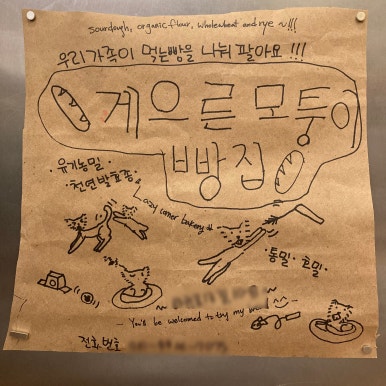 sourdough, organic flour, wholewheat and rye ~!!!
우리가족이 먹는빵을 나눠 팔아요 !!!
게으른 모퉁이
빵집
· 유기농밀
· 천연발효종
Lazy corner bakery
· 통밀 · 호밀
You'll be welcomed to try my
전화번호